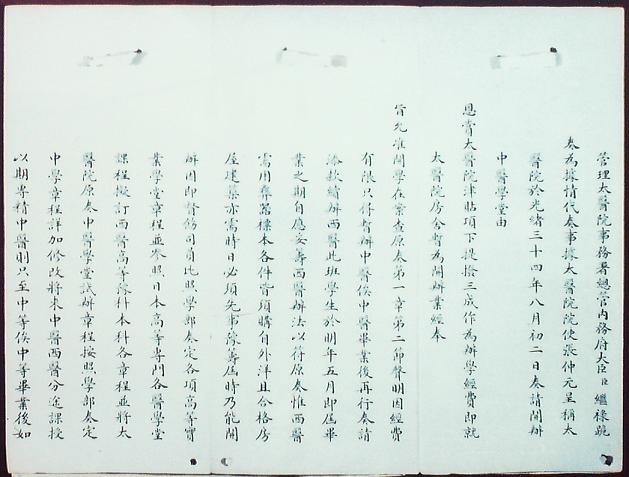 管理太醫院事務署總管內務府大臣臣繼祿跪
奏為據情代奏事據太醫院院使張仲元呈稱太
醫院於光緒三十四年八月初二日奏請開辦
中醫學堂由
恩賞太醫院津貼項下提撥三成作為辦學經費即就
太醫院房舍暫為開辦業經奉
旨允准開學在案查原奏第一章第二節聲明因經費
有限只得暫辦中醫俟中醫畢業後再行奏請
添款續辦西醫此班學生於明年五月即屆畢
業之期自應妥籌西醫辦法以符原奏惟西醫
需用器標本各件皆須購自外洋且合格房
屋建築亦需時日必須先事籌屆時乃能開
辦因即督飭司員比照學部奏定各項高等實
業學堂章程並參照日本高等專門各醫學堂
課程擬訂西醫高等豫科本科各章程並將太
醫院原奏中醫學堂試辦章程按照學部奏定
中學章程詳加修改將來中醫西醫分途課授
以期專精中醫則只至中等俟中等畢業後如